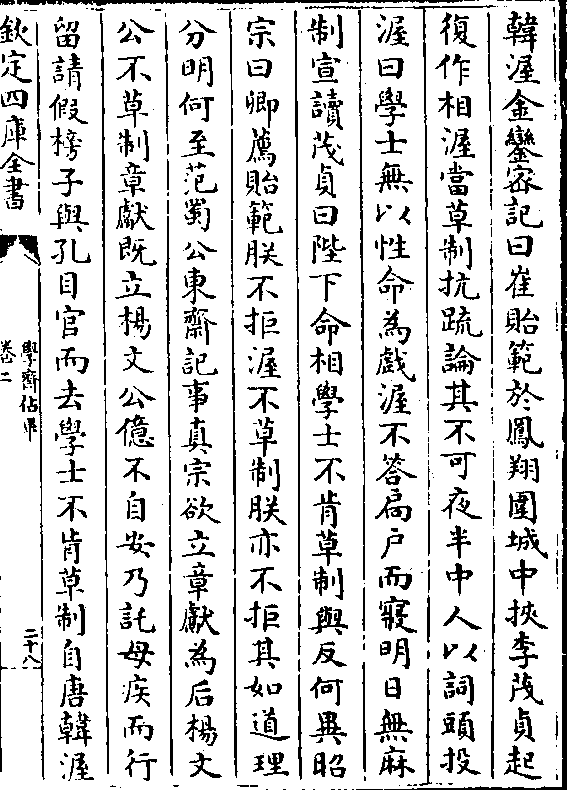 韓渥金鑾密記曰崔貽範於鳳翔圍城中挾李茂貞起
復作相渥當草制抗疏論其不可夜半中人以詞頭投
渥曰學士無以性命為戲渥不答扃戶而寢明日無麻
制宣讀茂貞曰陛下命相學士不肯草制與反何異昭
宗曰卿薦貽範朕不拒渥不草制朕亦不拒其如道理
分明何至范蜀公東齋記事真宗欲立章獻為后楊文
公不草制章獻既立楊文公億不自安乃託母疾而行
留請假榜子與孔目官而去學士不肯草制自唐韓渥
欽定四庫全書
學齋佔畢
卷二
二十八